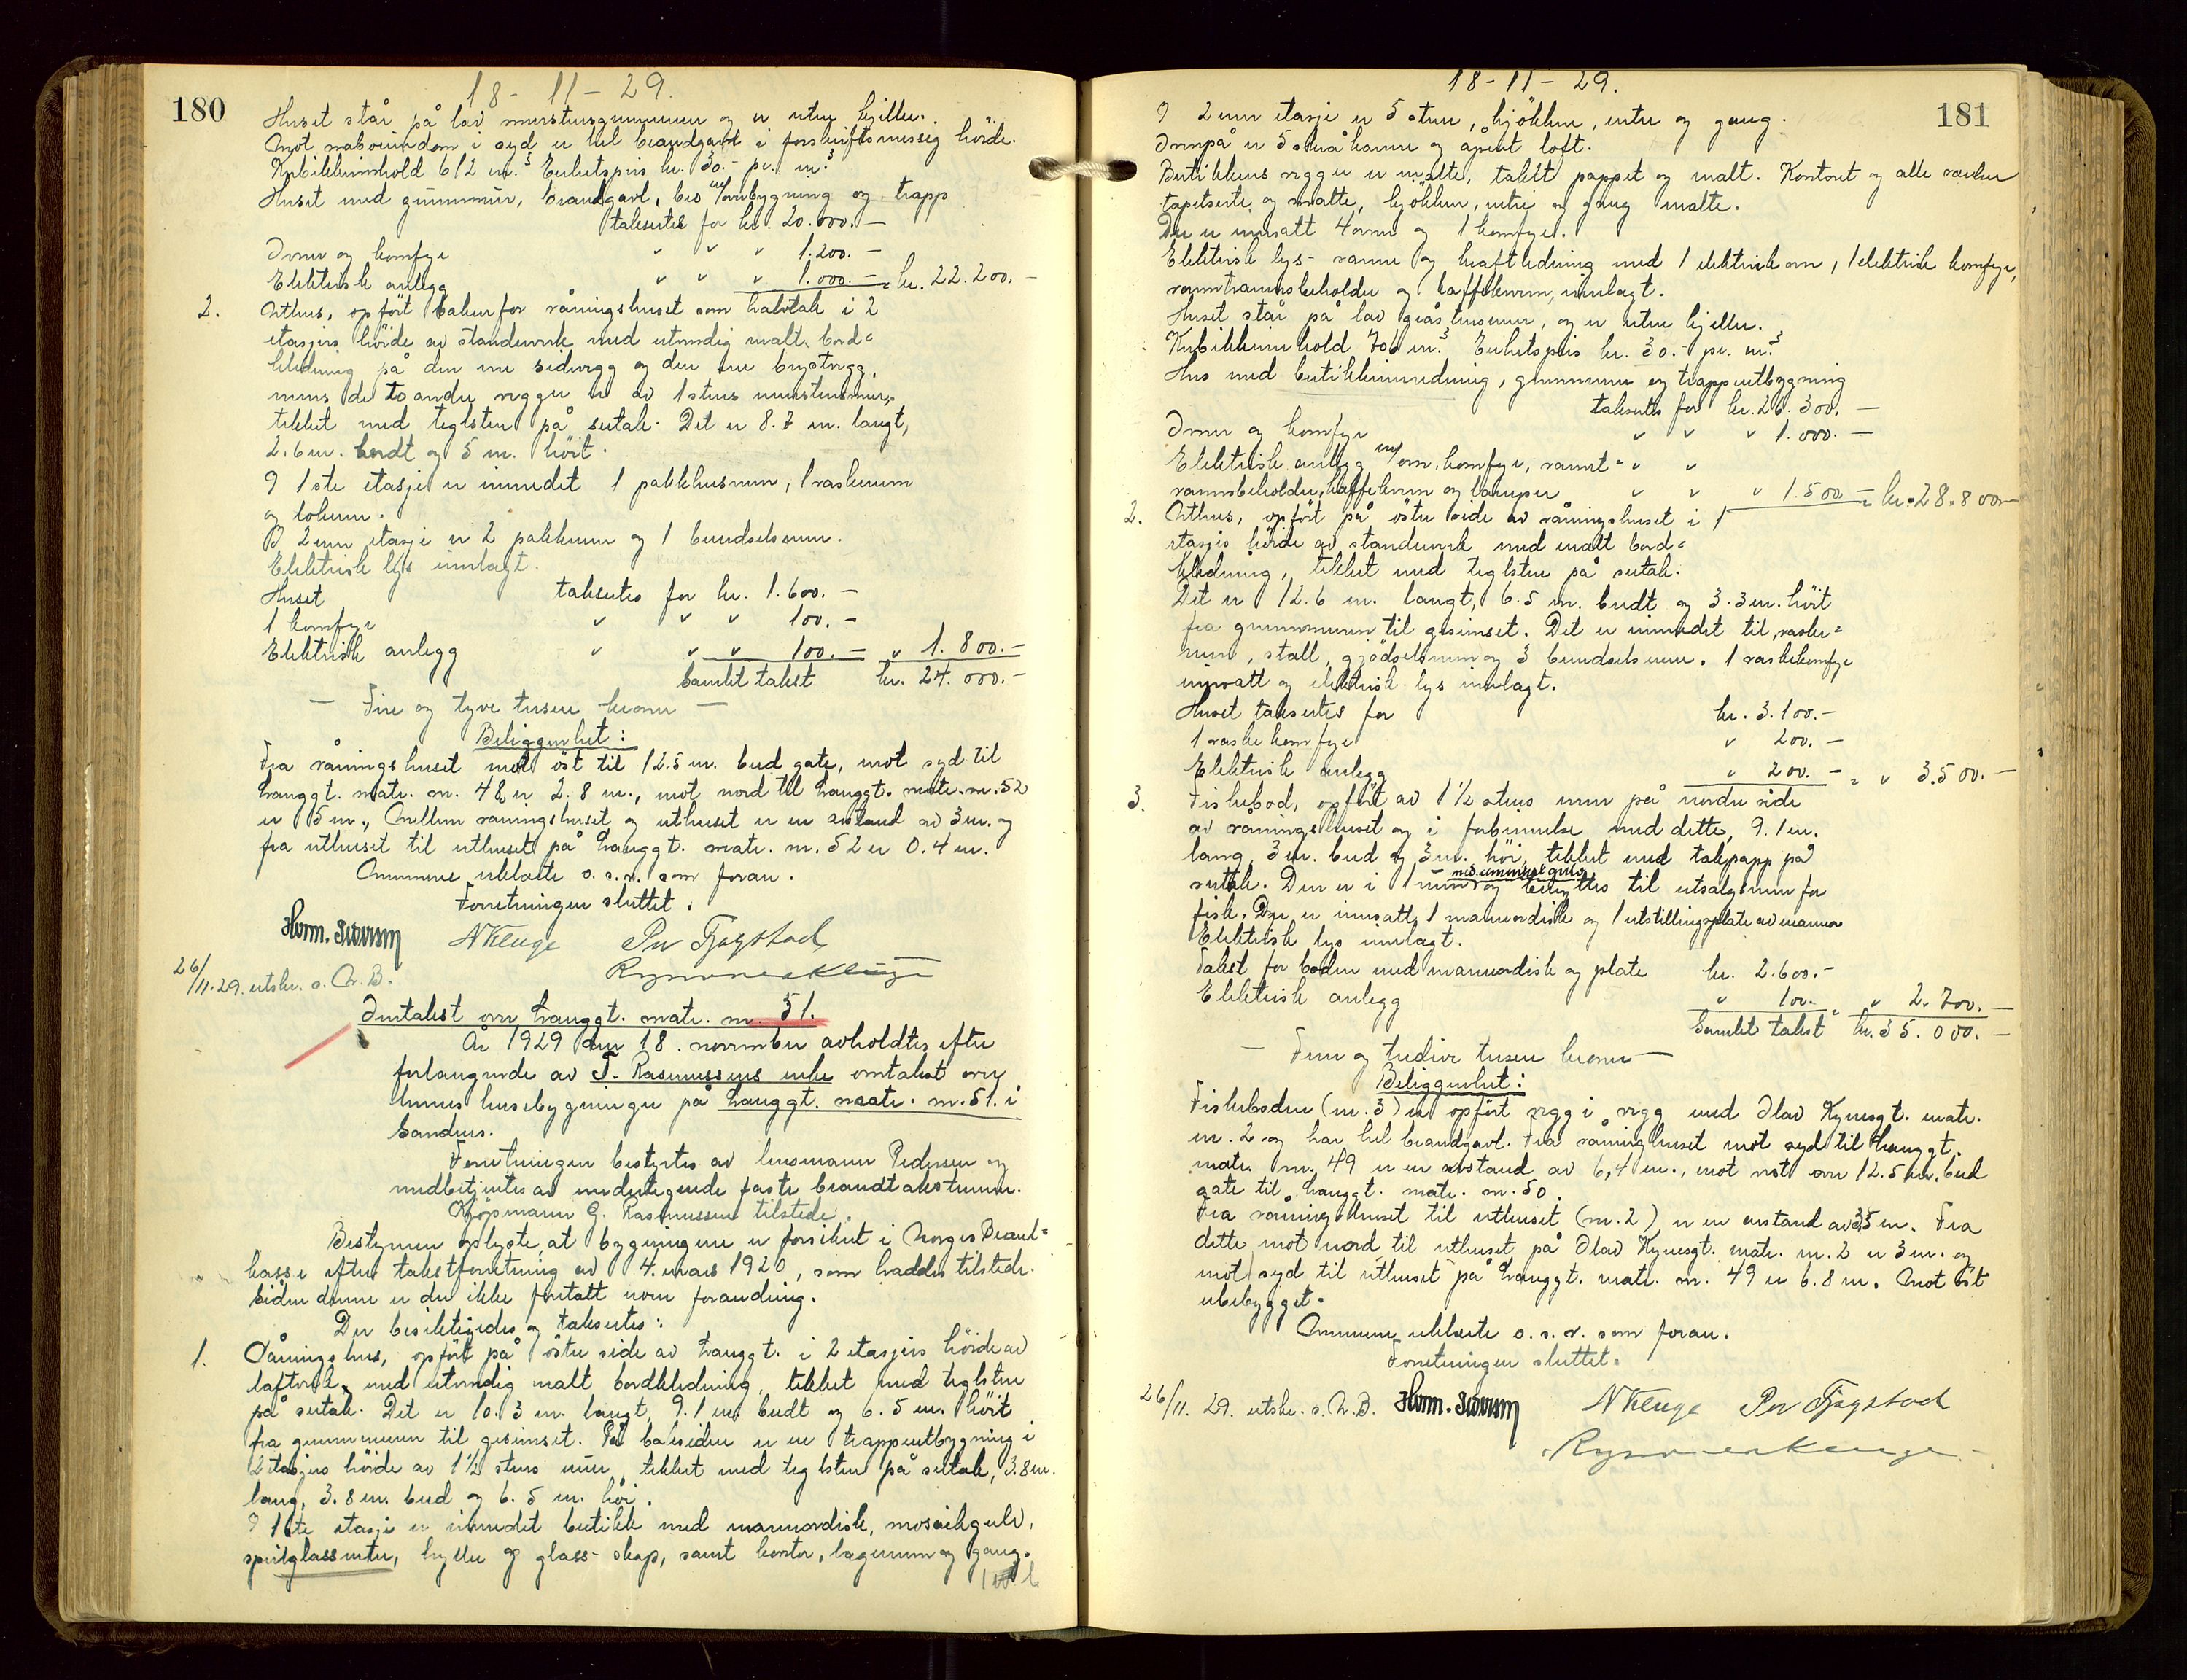 180
18 - 11 - 29.
Huset står på lav murstensgrunnmur og er uten kjeller.
Mot naboeiendom i syd er hel brandgavl i forskriftsmessig höide.
Kubikkinnhold 612 m.³ Enhetspris kr. 30.- pr. m.³
Huset med grunnmur, brandgavl, bis m/ovnbygning og trapp
takseres for kr. 20.000. -
Ovner og komfyr " " " 1.200. -
Elektrisk anlegg " " " 1.000. - = kr. 22.200. -
2. Uthus, opført bakenfor våningshuset som halvtak i 2
etasjers höide av standerverk med utvendig malt bord=
kledning på den ene sidevegg og den ene brystvegg,
mens de to andre vegger er av 1 stens murstensmur,
tekket med teglsten på sutak. Det er 8.7 m. langt,
2.6 m. bredt og 5 m. höit.
I 1ste etasje er innredet 1 pakkhusrum, 1 vaskerum
og lokum.
I 2nen etasje er 2 pakkrum og 1 brendselsrum.
Elektrisk lys innlagt.
Huset takseres for kr. 1.600. -
1 komfyr " " " 100. -
Elektrisk anlegg " " " 100. - " 1.800. -
Samlet takst kr. 24.000. -
- Fire og tyve tusen kroner -
Beliggenhet:
Fra våningshuset mot öst til 12.5 m. bred gate, mot syd til
Langgt. matr. nr. 48 er 2.8 m., mot nord til Langgt. matr. nr. 52
er 5 m., Mellem våningshuset og uthuset er en avstand av 3 m. og
fra uthuset til uthuset på Langgt. matr. nr. 52 er 0.4 m.
Omennene erklærte o.s.v. som foran.
Forretningen sluttet.
N Kluge Per Tjøgstad
26/11.29. utskr. s. N. B.
Omtakst over Langgt. matr. nr. 51.
År 1929 den 18. november avholdtes efter
forlangende av T. Rasmussens enke omtakst over
hennes husebygninger på Langgt. matr. nr. 51 i
Sandnes.
Forretningen bestyrtes av lensmann Pedersen og
medbetjentes av undertegnede faste brandtakstmenn.
Kjøpmann G. Rasmussen tilstede.
Bestyreren oplyste at bygningene er forsikret i Norges Brand=
kasse efter takstforretning av 4. mars 1920, som haddes tilstede.
Siden denne er der ikke foretatt noen forandring.
Der besiktigedes og taksertes:
1. Våningshus, opført på östre side av Langgt. i 2 etasjers höide av
laftverk, med utvendig malt bordkledning, tekket med teglsten
på sutak. Det er 10.3 m. langt, 9.1 m. bredt og 6.5 m. höit
fra grunnmuren til gesimset. På baksiden er en trappeutbygning i
2 etasjers höide av 1½ stens mur, tekket med teglsten på sutak, 3.8 m.
lang, 3.8 m. bred og 6.5 m. höi.
I 1ste etasje er innredet butikk med marmordisk, mosaikgulv,
speilglassruter, hyller og glass-skap, samt kontor, lagerrum og gang.
181
18 - 11 - 29.
I 2nen etasje er 5 stuer, kjökken, entre og gang.
Ovenpå er 5 små kamre og åpent loft.
Butikkens vegger er malte, taket pappet og malt. Kontoret og alle værelser
tapetserte og malte, kjökken, entre og gang malte.
Der er innsatt 4 ovner og 1 komfyr.
Elektrisk lys- varme og kraftledning med 1 elektrisk ovn, 1 elektrisk komfyr,
varmtvannsbeholder og kaffekvern, innlagt.
Huset står på lav gråstensmur, og er uten kjeller.
Kubikkinnhold 706 m.³ Enhetspris kr. 30.- pr. m.³
Hus med butikkinnredning, grunnmur og trappeutbygning
takseres for kr. 26.300. -
Ovner og komfyr " " " 1.000. -
Elektrisk anlegg m/ovn, komfyr, varmt= " "
vannsbeholder, kaffekvern og lamper " " " 1.500 - = kr. 28.800 -
2. Uthus, opført på östre side av våningshuset i 1
etasjes höide av standerverk med malt bord=
kledning, tekket med teglsten på sutak.
Det er 12.6 m. langt, 6.5 m. bredt og 3.3 m. höit
fra grunnmuren til gesimset. Det er innredet til vaske=
rum, stall, gjödselsrum og 3 brendselsrum. 1 vaskekomfyr
innsatt og elektrisk lys innlagt.
Huset takseres for kr. 3.100. -
1 vaskekomfyr " 200. -
Elektrisk anlegg " 200. - = " 3.500. -
3. Fiskebod, opført av 1½ stens mur på nordre side
av våningshuset og i forbinnelse med dette, 9.1 m.
lang, 3 m. bred og 3 m. höi, tekket med takpapp på
sutak. Den er i 1 rum med cementert gulv og benyttes til utsalgsrum for
fisk. Der er innsatt 1 marmordisk og 1 utstillingsplate av marmor
Elektrisk lys innlagt.
Takst for boden med marmordisk og plate kr. 2.600. -
Elektrisk anlegg " 100. = " 2.700. -
Samlet takst kr. 35.000. -
- Fem og tredive tusen kroner -
Beliggenhet:
Fiskeboden (nr. 3) er opført vegg i vegg med Olav Kyrresgt. matr.
nr. 2 og har hel brandgavl. Fra våninghuset mot syd til Langgt.
matr. nr. 49 er en avstand av 6,4 m., mot vest over 12.5 m. bred
gate til Langgt. matr. nr. 50.
Fra våninghuset til uthuset (nr. 2) er en avstand av 3,5 m. Fra
dette mot nord til uthuset på Olav Kyrresgt. matr. nr. 2 er 3 m. og
mot syd til uthuset på Langgt. matr. nr. 49 er 6.8 m. Mot öst
ubebygget.
Omennene erklærte o.s.v. som foran.
Forretningen sluttet.
26/11. 29. utskr. s. N. B. N Kluge Per Tjøgstad